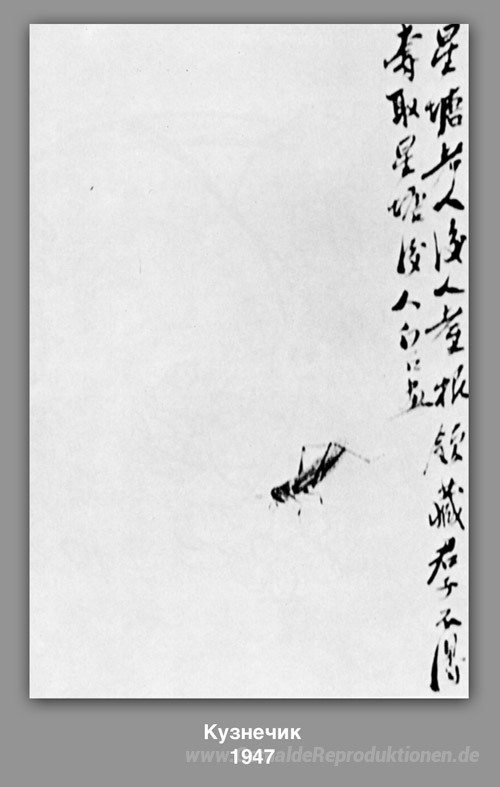 星塘老人後人根藏君子不得
取星塘後人
Кузнечик
1947
www.GemaldeReproduktionen.de